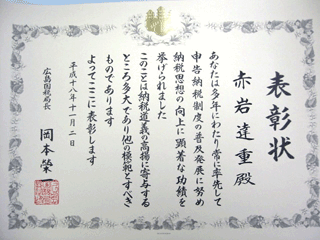 表彰状
赤岩達重殿
あなたは多年にわたり常に率先して
申告納税制度の普及発展に努め
納税思想の向上に顕著な功績を
挙げられました
このことは納税道義の高揚に寄与する
ところ多大であり他の模範とすべき
ものであります
よってここに表彰します
平成十八年十一月二日
広島国税局長
岡本榮一